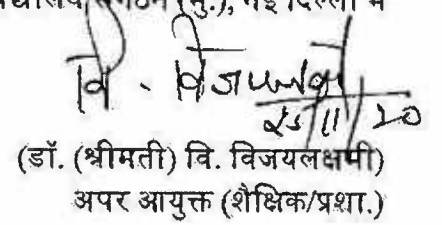 संगठन (मु.), नई दिल्ली में
वि. विजयलक्ष्मी
25/11/20
(डॉ. (श्रीमती) वि. विजयलक्ष्मी)
अपर आयुक्त (शैक्षिक/प्रशा.)